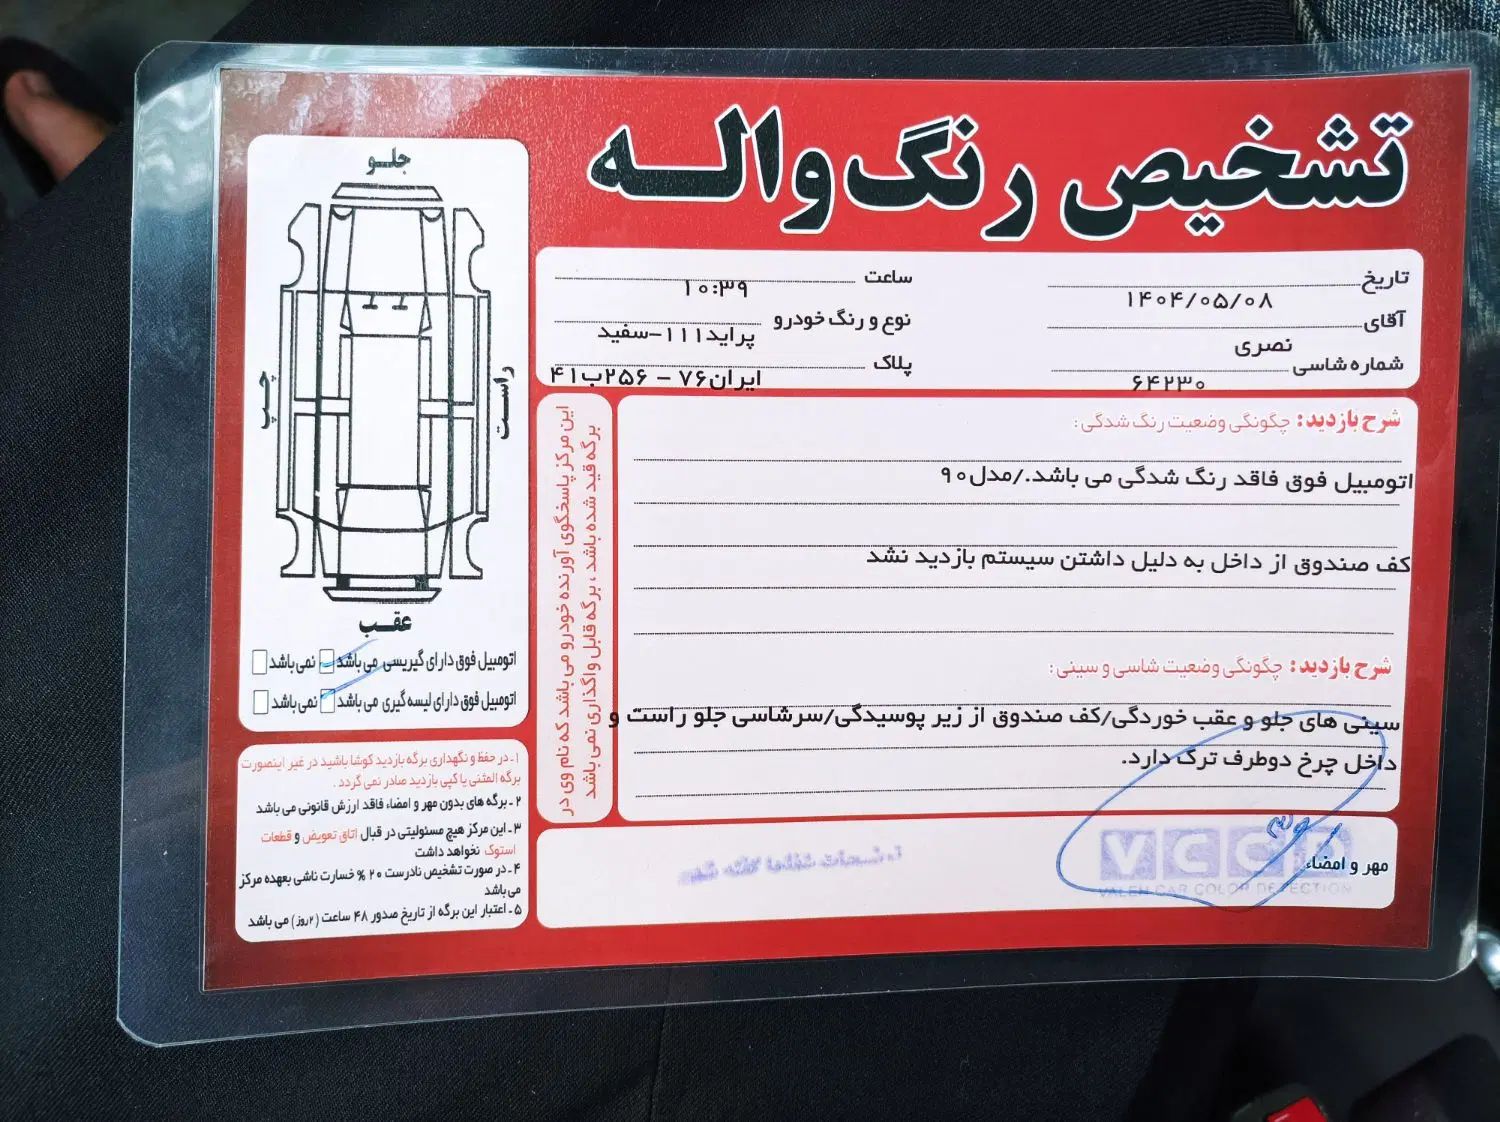 تشخیص رنگ واله
تاریخ ۱۴۰۴/۰۵/۰۸
ساعت ۱۰:۳۹
آقای نصری
نوع و رنگ خودرو پراید۱۱۱-سفید
شماره شاسی ۶۴۲۳۰
پلاک ایران۷۶ - ۲۵۶ب۴۱
شرح بازدید: چگونگی وضعیت رنگ شدگی:
اتومبیل فوق فاقد رنگ شدگی می باشد./مدل۹۰
کف صندوق از داخل به دلیل داشتن سیستم بازدید نشد
شرح بازدید: چگونگی وضعیت شاسی و سینی:
سینی های جلو و عقب خوردگی/کف صندوق از زیر پوسیدگی/سرشاسی جلو راست و
داخل چرخ دوطرف ترک دارد.
مهر و امضاء
VCCD
VALEH CAR COLOR DETECTION
این مرکز پاسخگوی آورنده خودرو می باشد که نام وی در
برگه قید شده باشد ، برگه قابل واگذاری نمی باشد
جلو
چپ
راست
عقب
اتومبیل فوق دارای گیریسی می باشد نمی باشد
اتومبیل فوق دارای لیسه گیری می باشد نمی باشد
۱ـ در حفظ و نگهداری برگه بازدید کوشا باشید در غیر اینصورت
برگه المثنی یا کپی بازدید صادر نمی گردد .
۲ ـ برگه های بدون مهر و امضاء فاقد ارزش قانونی می باشد
۳ـ این مرکز هیچ مسئولیتی در قبال اتاق تعویض و قطعات
استوک نخواهد داشت
۴ ـ در صورت تشخیص نادرست ۲۰ % خسارت ناشی بعهده مرکز
می باشد
۵ ـ اعتبار این برگه از تاریخ صدور ۴۸ ساعت (۲روز) می باشد